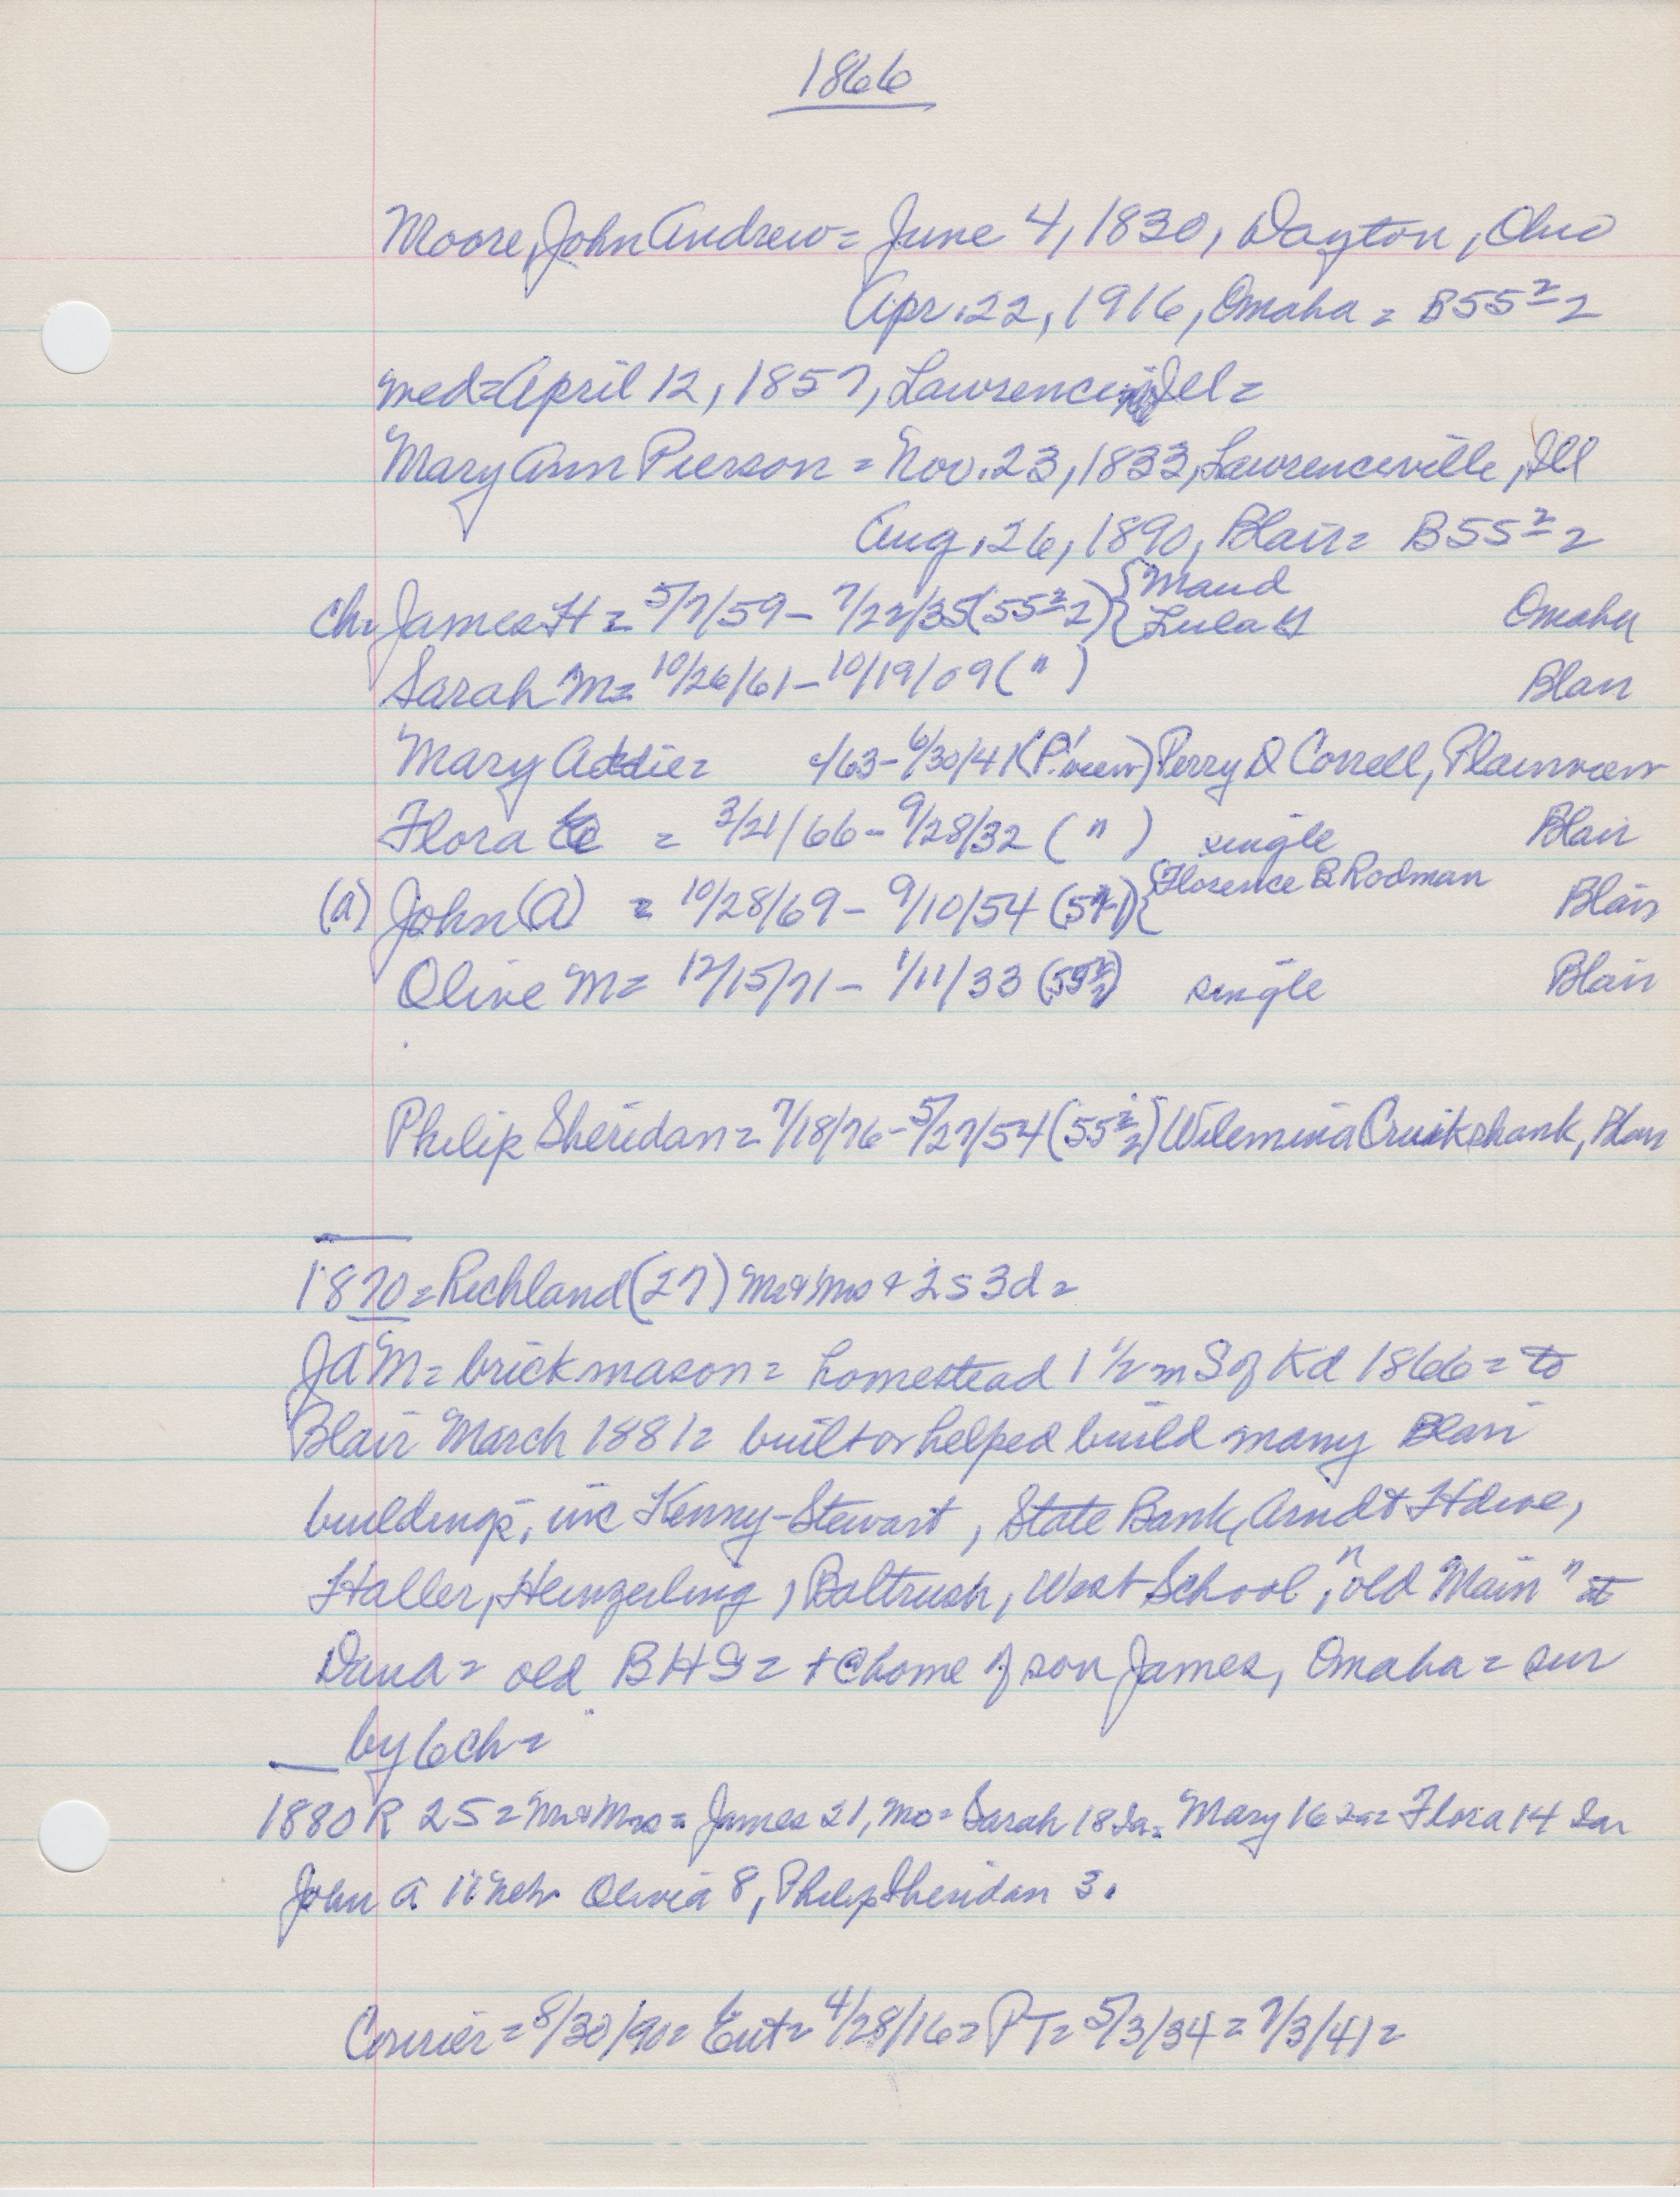 1866
Moore, John Andrew = June 4, 1830, Dayton, Ohio
Apr. 22, 1916, Omaha = B55 2/2
med = April 12, 1857, Lawrence Ill =
Mary Ann Pierson = Nov. 23, 1833, Lawrenceville, Ill
Aug. 26, 1890, Blair = B55 2/2
ch = James H = 5/7/59 - 7/22/35 (55 2/2) { Maud Lula Omaha
Sarah M = 10/26/61 - 10/19/09 ( " ) Blair
Mary Addie = /63 - 6/30/41 (P'view) Perry D Correll, Plainview
Flora = 3/21/66 - 9/28/32 ( " ) single Blair
(a) John (A) = 10/28/69 - 9/10/54 { Florence B Rodman Blair
Olive M = 12/15/71 - 1/11/33 (55 2/2) single Blair
Philip Sheridan = 7/18/76 - 5/27/54 (55 2/2) Wilemina Cruikshank, Blair
1870 = Richland (27) Mr & Mrs + 2s 3d =
JAM = brick mason = homestead 1 1/2 m S of Kd 1866 = to
Blair March 1881 = built or helped build many Blair
buildings, inc Kenny-Stewart, State Bank, Arndt Hdwe,
Haller, Heinzerling, Baltrush, West School, "old Main" at
Dana = old BHS = + @ home of son James, Omaha = sur
by 6 ch =
1880 R 25 = Mr & Mrs = James 21, Mo = Sarah 18 Ia = Mary 16 Ia = Flora 14 Ia =
John A 11 Neb = Olivia 8, Philip Sheridan 3.
Courier = 8/30/90 = Ent = 4/28/16 = PT = 5/3/34 = 7/3/41 =